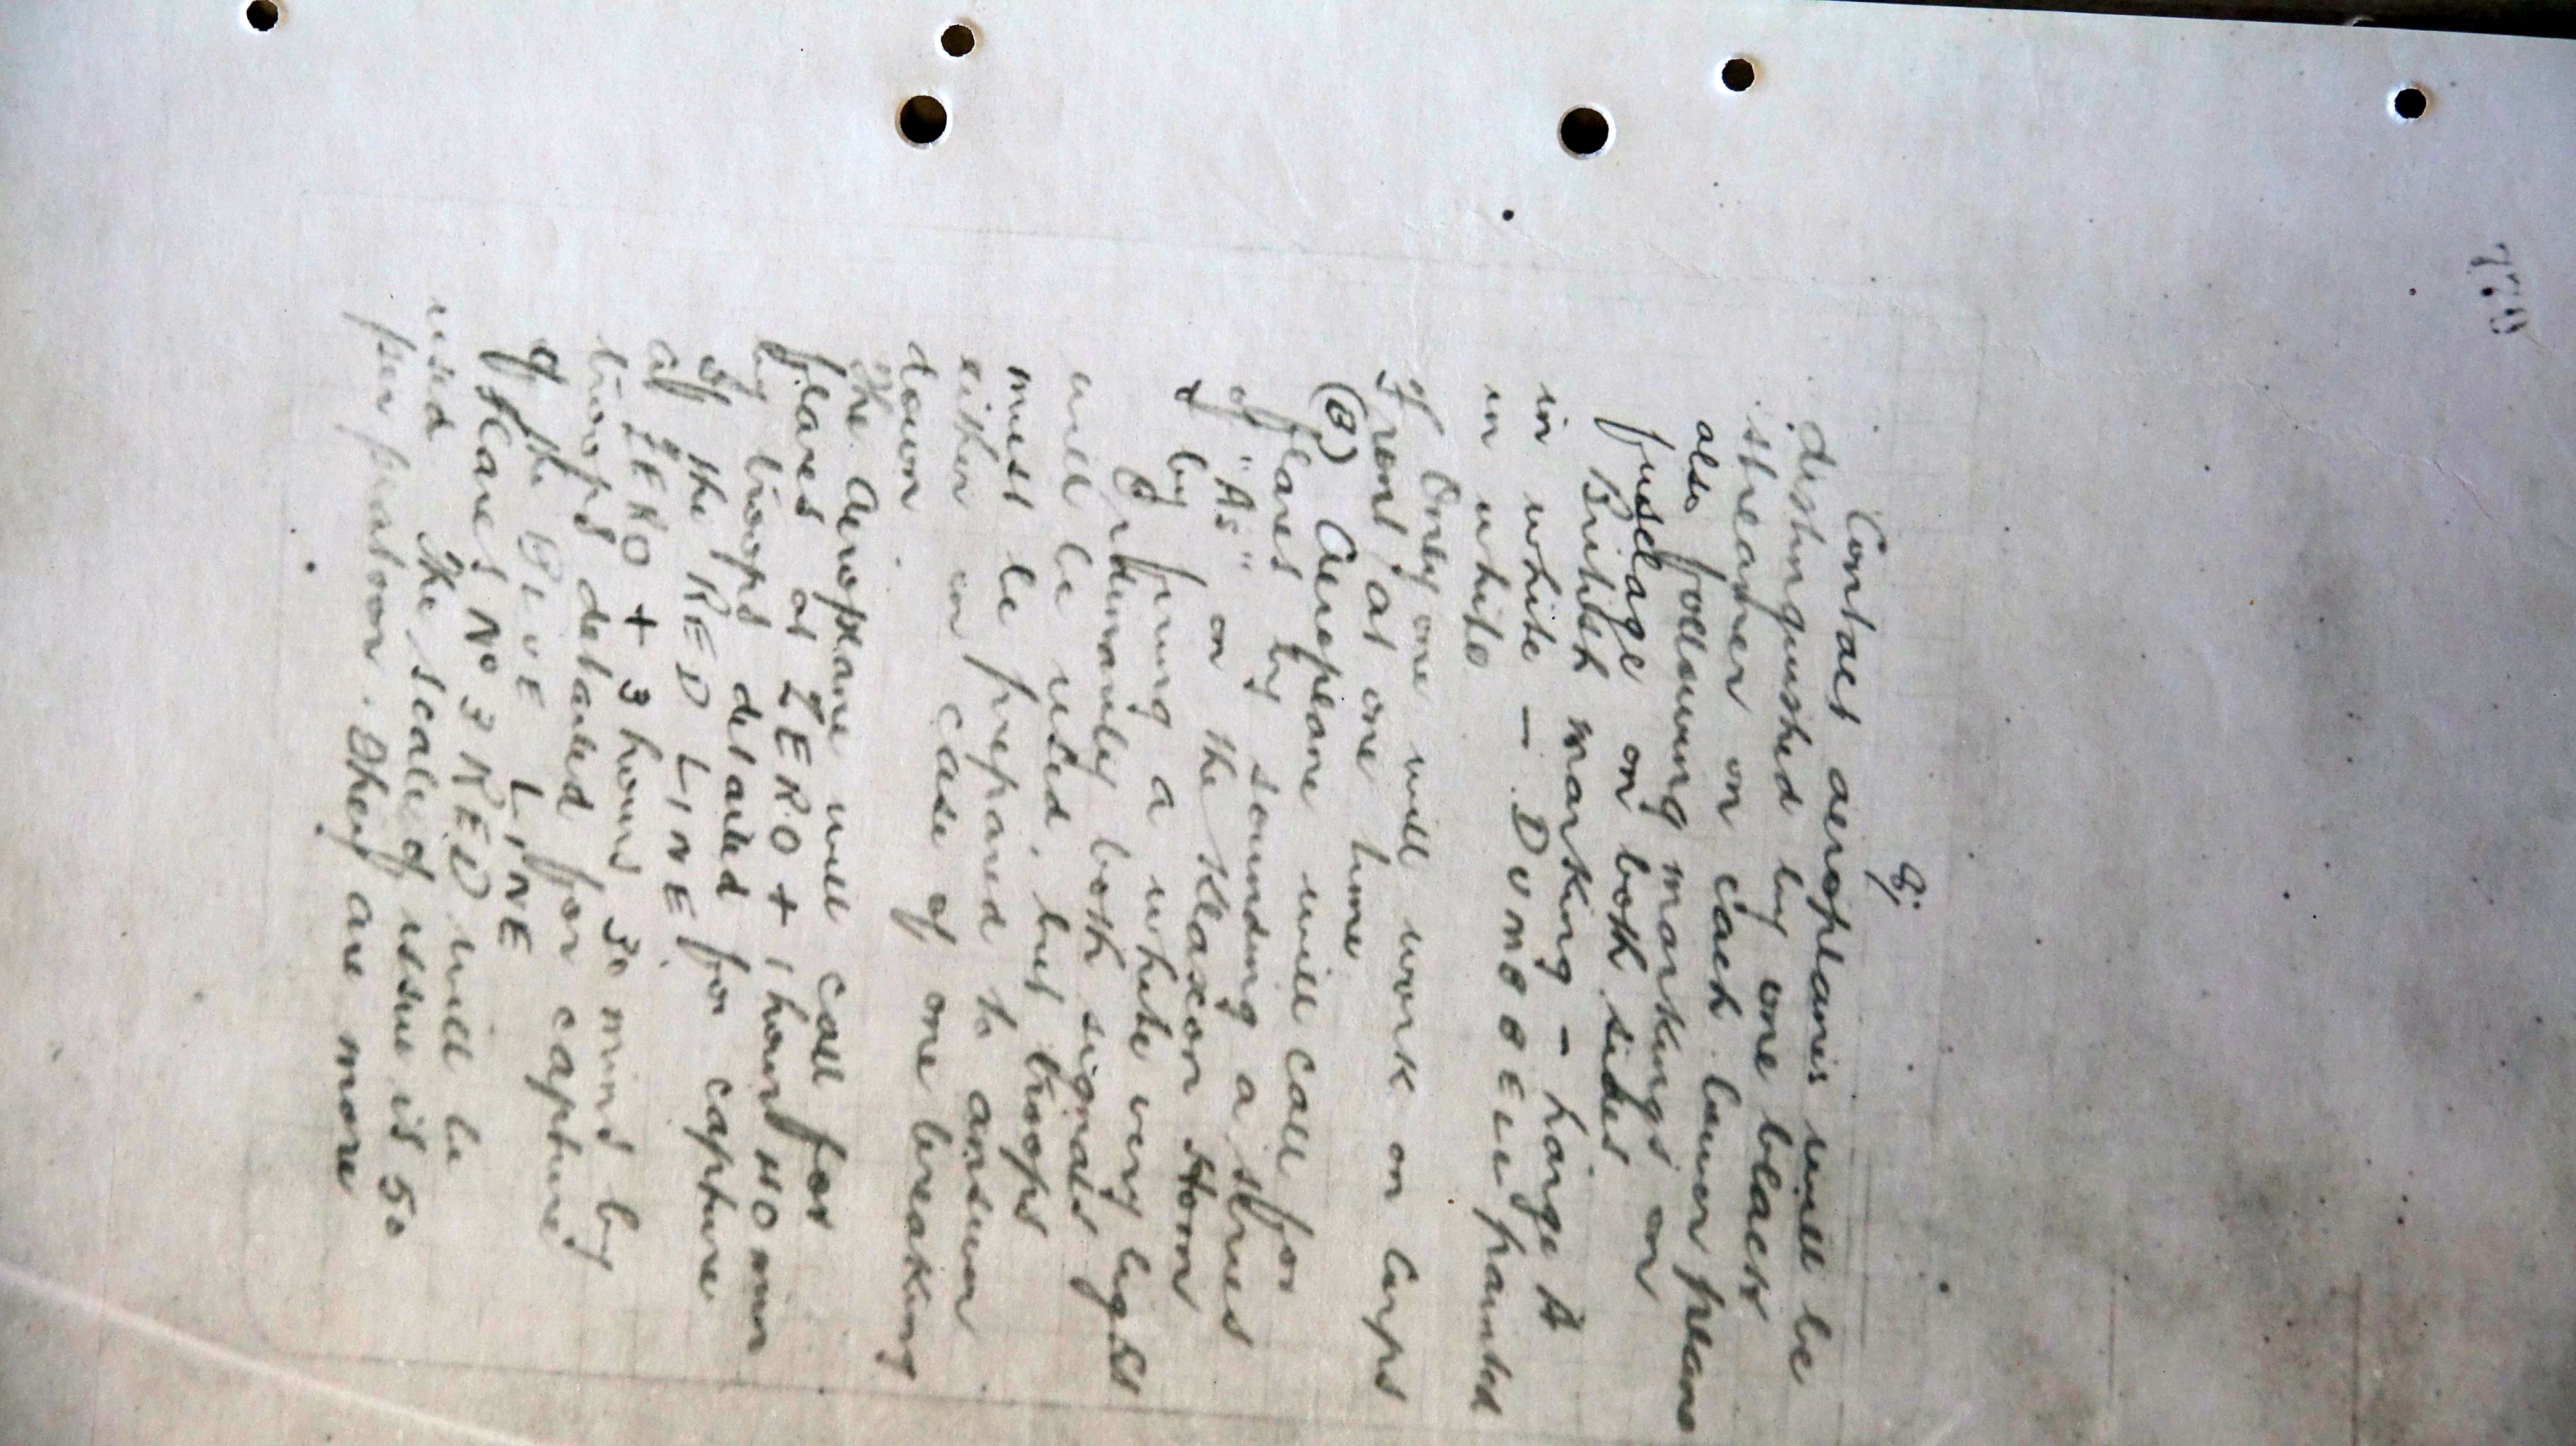 779
8.
Contact aeroplanes will be
distinguished by one black
streamer on each lower plane
also following markings on
fuselage on both sides
British marking - Large A
in white - DUMBBELL painted
in white
Only one will work on Corps
front at one time
(B) Aeroplane will call for
flares by sounding a series
of "As" on the Klaxon Horn
& by firing a white very light
Ordinarily both signals
will be used, but troops
must be prepared to answer
either in case of one breaking
down
The Aeroplane will call for
flares at ZERO + 1 hour 40 min
by troops detailed for capture
of the RED LINE
at ZERO + 3 hours 30 mins by
troops detailed for capture
of the BLUE LINE
Flares No 3 RED will be
used The scale of issue is 50
per platoon. They are more